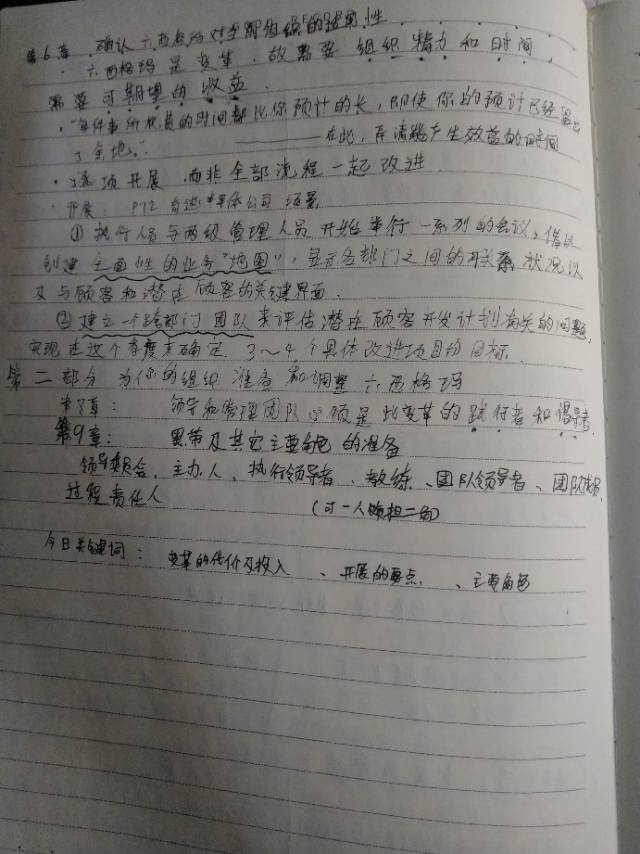 第6章 确认六西格玛对于你组织的适用性
· 六西格玛是变革，故需要组织精力和时间，
需要可期望的收益。
· "每件事所耗费的时间都比你预计的长，即使你的预计已经留出
了余地。" 在此，存清能产生效益的时间
· 逐项开展，而非全部流程一起改进
· 开展： P72 公司 场景
① 执行人员与两级管理人员开始举行一系列的会议，借以
创建全面性的业务"地图"，显示各部门之间的联系状况以
及与顾客和潜在顾客的关键界面。
② 建立一个跨部门团队来评估潜在顾客开发计划有关的问题，
实现在这个季度末确定 3～4个具体改进项目的目标。
第二部分 为你的组织准备和调整六西格玛
第8章： 领导和管理团队必须是此变革的践行者和倡导者.
第9章： 黑带及其它主要角色的准备
领导委员会、主办人、执行领导者、教练、团队领导者、团队成员
过程责任人 (可一人兼担二角)
今日关键词： 变革的代价及投入 、开展的要点 、主要角色